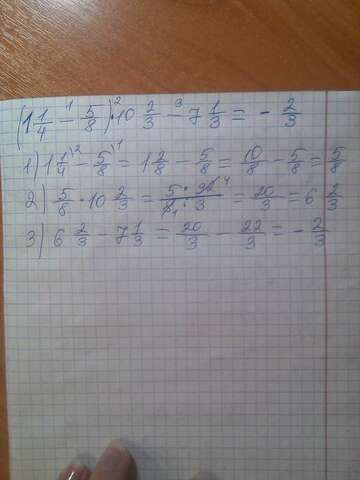 (1 1/4 -¹ 5/8) ·² 10 2/3 -³ 7 1/3 = - 2/3
1) 1 1/4 \² - 5/8 \¹ = 1 2/8 - 5/8 = 10/8 - 5/8 = 5/8
2) 5/8 · 10 2/3 = 5 · 32 ⁴/8 ₁ · 3 = 20/3 = 6 2/3
3) 6 2/3 - 7 1/3 = 20/3 - 22/3 = - 2/3